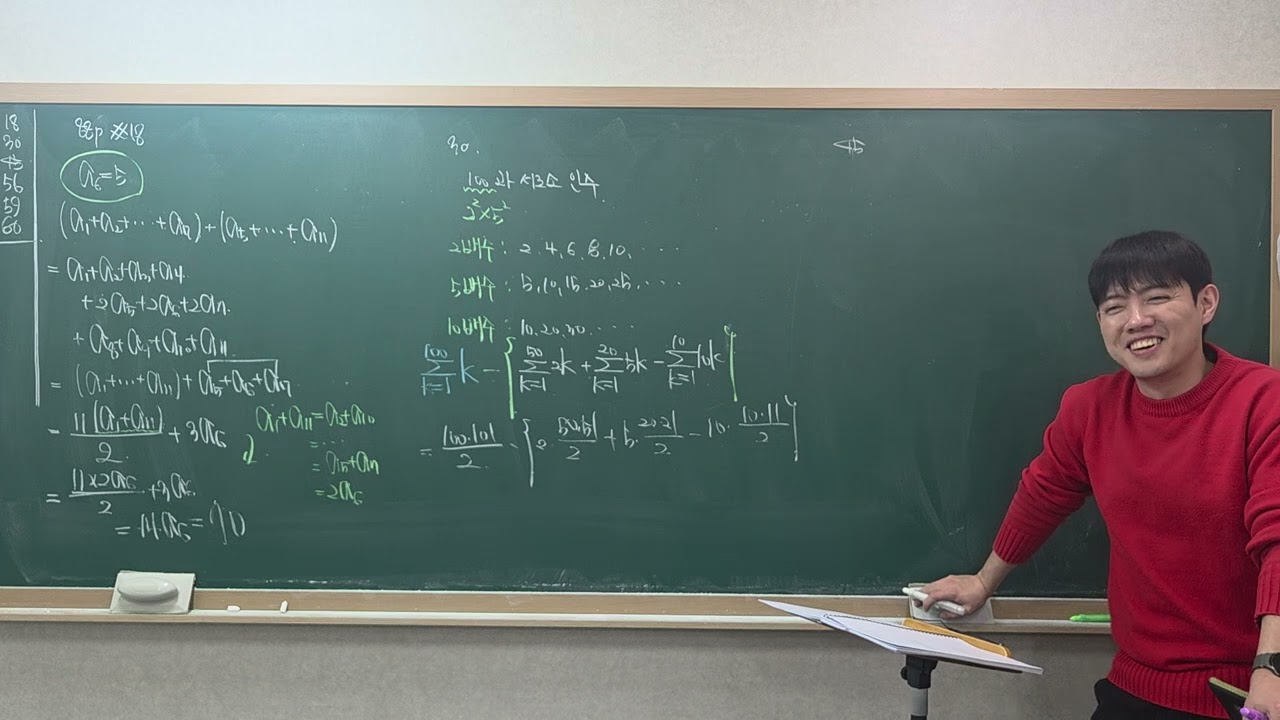 18
30
45
56
59
60
99p #18
a₆=5
(a₁+a₂+⋯+a₇)+(a₅+⋯+a₁₁)
= a₁+a₂+a₃+a₄
+2a₅+2a₆+2a₇
+a₈+a₉+a₁₀+a₁₁
= (a₁+⋯+a₁₁)+a₅+a₆+a₇
= 11(a₁+a₁₁)/2 + 3a₆
a₁+a₁₁=a₂+a₁₀
=⋯
=a₅+a₇
=2a₆
= 11×2a₆/2 +3a₆
= 14a₆=70
30.
100과 서로소 인수
2²×5²
2배수: 2.4.6.8.10.⋯
5배수: 5,10,15.20,25.⋯
10배수: 10.20.30.⋯
∑_{k=1}^{100} k - { ∑_{k=1}^{50} 2k + ∑_{k=1}^{20} 5k - ∑_{k=1}^{10} 10k }
= 100·101/2 - { 2·50·51/2 + 5·20·21/2 - 10·10·11/2 }
45